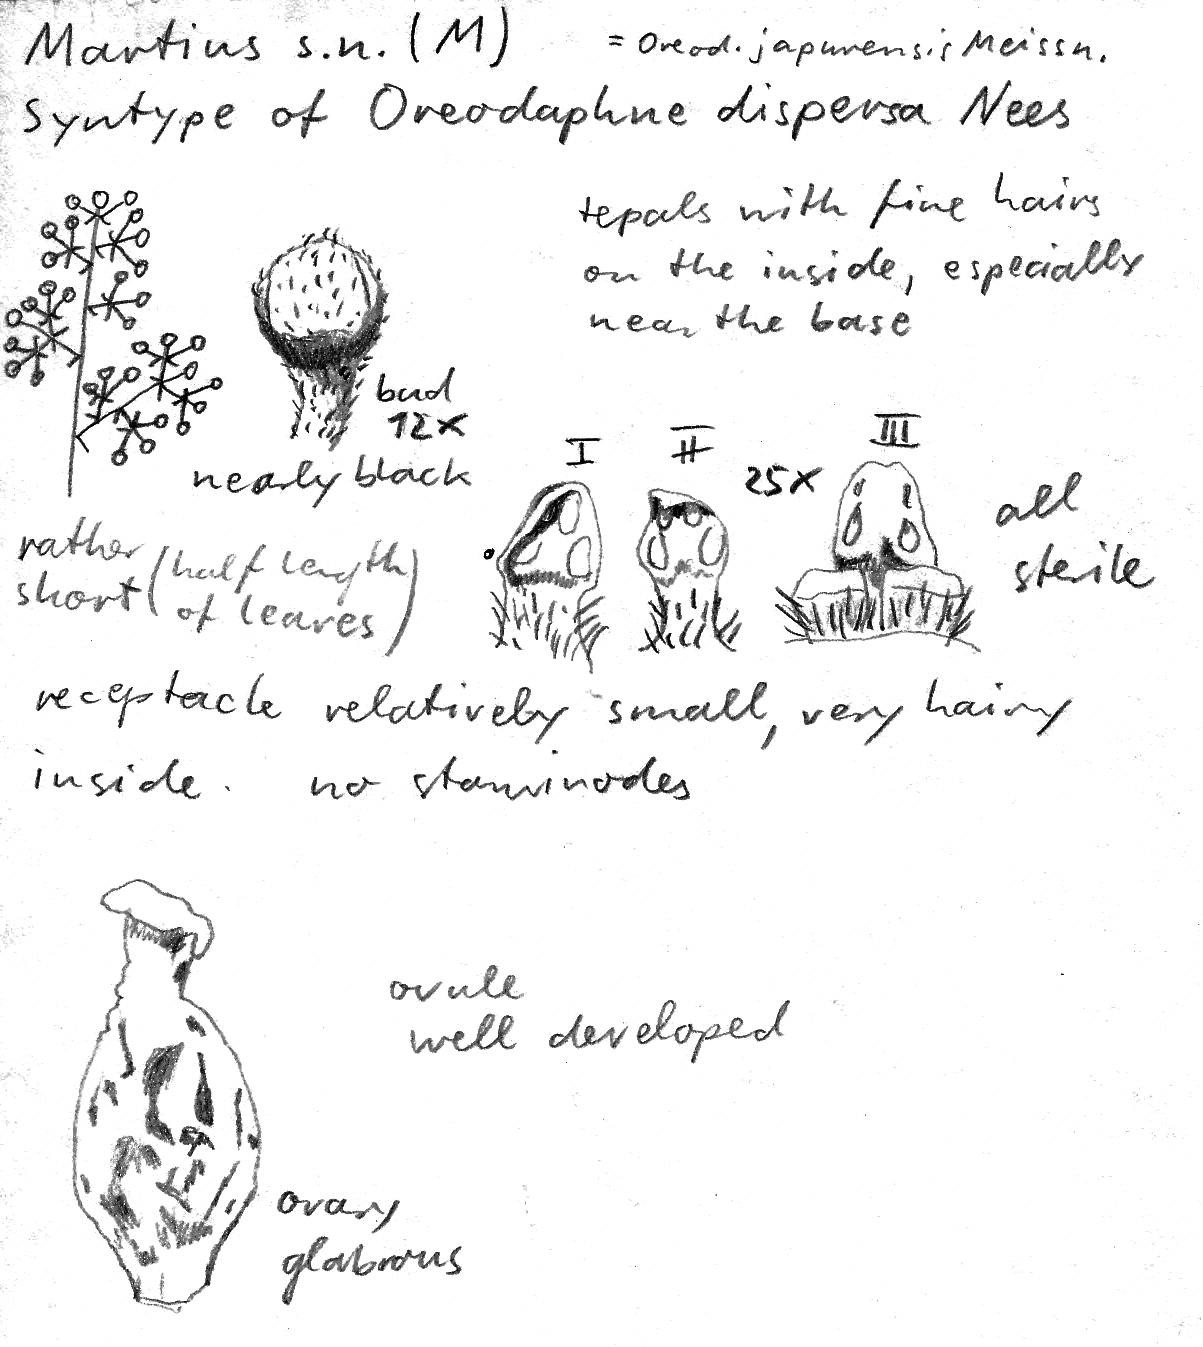 Martius s.n. (M) = Oreod. japurensis Meissn.
Syntype of Oreodaphne dispersa Nees
tepals with fine hairs
on the inside, especially
near the base
bud
12x
nearly black
I II III
25x
all
sterile
rather
short (half length
of leaves)
receptacle relatively small, very hairy
inside. no staminodes
ovule
well developed
ovary
glabrous